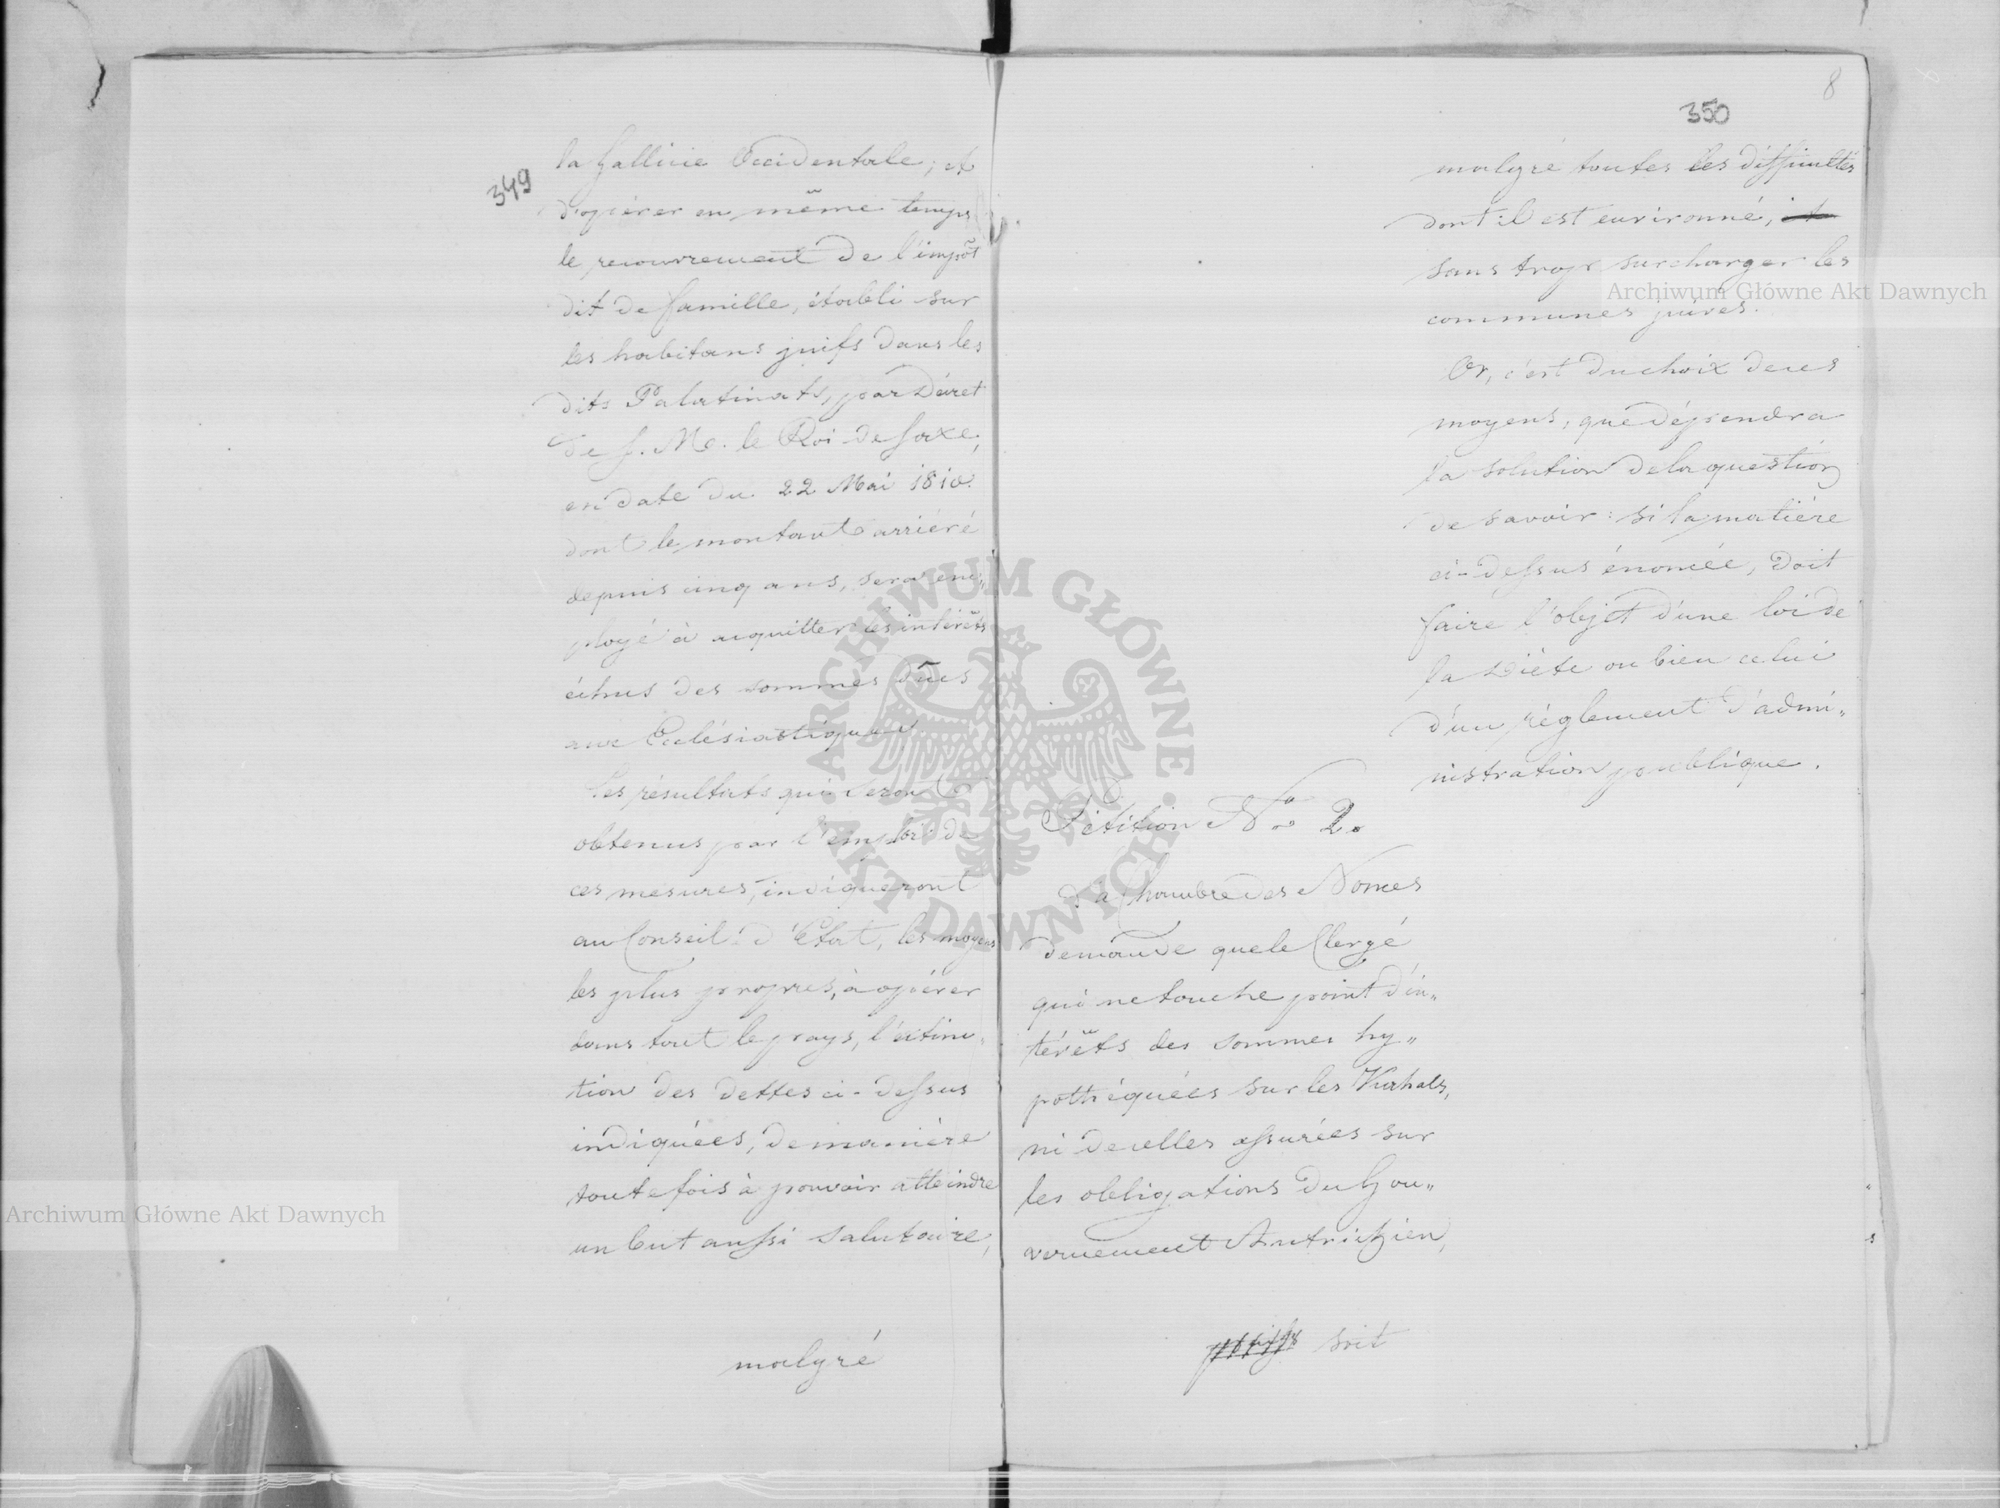 349
la Gallicie Occidentale; et
d'opérer en même temps
le recouvrement de l'impôt
dit de famille, établi sur
les habitans juifs dans les
dits Palatinats, par Décret
de S. M. le Roi de Saxe,
en date du 22 Mai 1810.
dont le montant arriéré
depuis cinq ans, sera em„
ployé à acquitter les intérêts
échus des sommes dûes
aux Ecclésiastiques
Les résultats qui seront
obtenus par l'emploi de
ces mesures, indiqueront
au Conseil d'Etat, les moyens
les plus propres, à opérer
dans tout le pays, l'extinc„
tion des dettes ci-dessus
indiquées, de manière
toutefois à pouvoir atteindre
un but aussi salutaire,
malgré
8
350
malgré toutes les difficultés
dont il est environné,
sans trop surcharger les
communes juives.
Or, c'est du choix de ces
moyens, que dépendra
la solution de la question
de savoir: si la matière
ci-dessus énoncée, doit
faire l'objet d'une loi de
la Diète ou bien celui
d'un réglement d'admi„
nistration publique.
Pétition No 2.
La Chambre des Nonces
demande que le Clergé
qui ne touche point d'in„
térêts des sommes hy„
pothéquées sur les Kahals,
ni de celles assurées sur
les obligations du Gou„
vernement Autrichien,
soit
Archiwum Główne Akt Dawnych
Archiwum Główne Akt Dawnych
ARCHIWUM GŁÓWNE AKT DAWNYCH